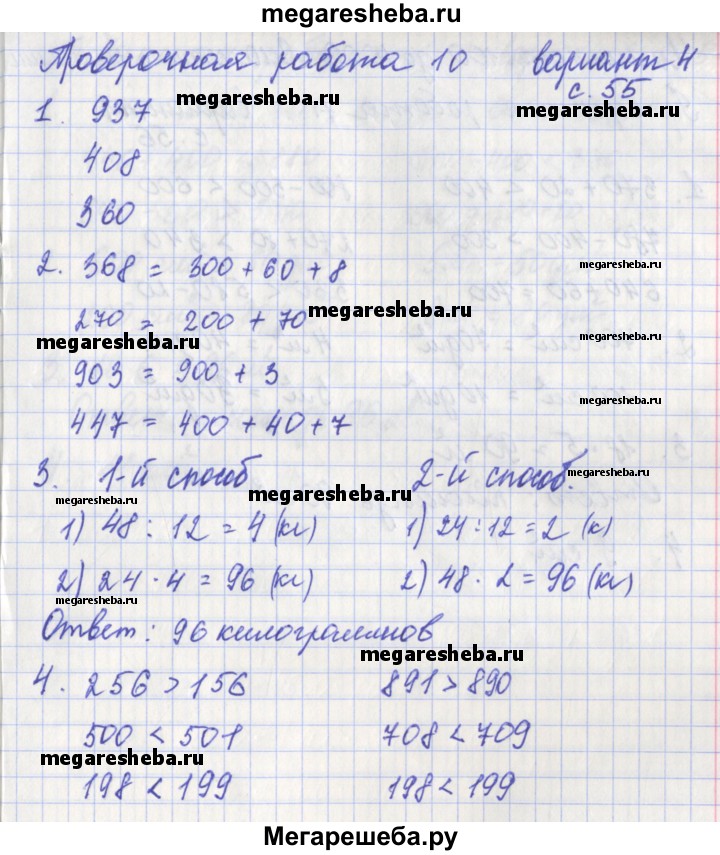 megaresheba.ru
Проверочная работа 10 вариант 4
с. 55
1. 937
megaresheba.ru
408
360
2. 368 = 300 + 60 + 8
megaresheba.ru
270 = 200 + 70
megaresheba.ru
megaresheba.ru
megaresheba.ru
903 = 900 + 3
megaresheba.ru
447 = 400 + 40 + 7
3. 1-й способ 2-й способ.
megaresheba.ru
megaresheba.ru
megaresheba.ru
1) 48 : 12 = 4 (кг) 1) 24 : 12 = 2 (к)
2) 24 · 4 = 96 (кг) 2) 48 · 2 = 96 (кг)
megaresheba.ru
megaresheba.ru
Ответ: 96 килограммов
megaresheba.ru
4. 256 > 156 891 > 890
500 < 501 708 < 709
megaresheba.ru
198 < 199 198 < 199
Мегарешеба.ру